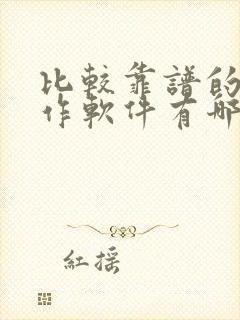 比較靠譜的
作軟件有哪
紅摇